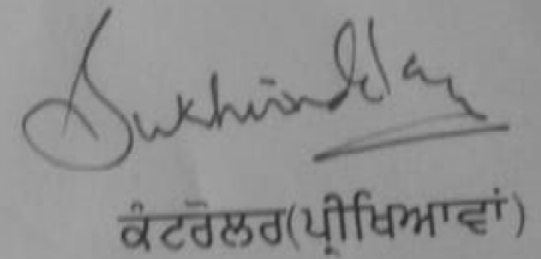 Sukhvinder
ਕੰਟਰੋਲਰ(ਪ੍ਰੀਖਿਆਵਾਂ)